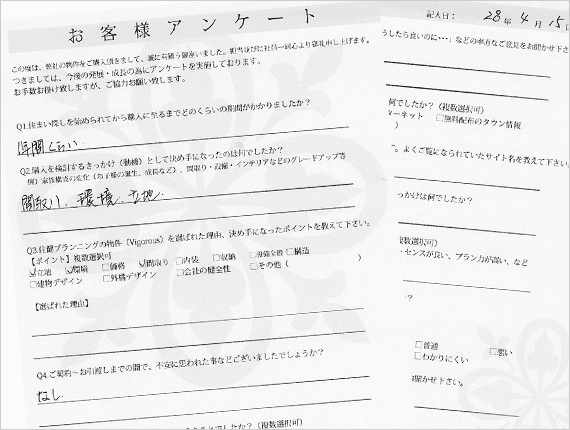 お客様アンケート
この度は、弊社の物件をご購入頂きまして、誠に有難う御座いました。担当並びに社員一同心より御礼申し上げます。
つきましては、今後の発展・成長の為にアンケートを実施しております。
お手数お掛け致しますが、ご協力お願い致します。
Q1.住まい探しを始められてから購入に至るまでどのくらいの期間がかかりましたか？
1年間くらい
Q2.購入を検討するきっかけ（動機）として決め手になったのは何でしたか？
例）家族構成の変化（お子様の誕生、成長など）、間取り・設備・インテリアなどのグレードアップ等
間取り、環境、立地
Q3.住健プランニングの物件（Vigorous）を選ばれた理由、決め手になったポイントを教えて下さい。
【ポイント】複数選択可
☑立地 ☑環境 □価格 ☑間取り □内装 □収納 □設備全般 □構造
□建物デザイン □外構デザイン □会社の健全性 □その他（ ）
【選ばれた理由】
Q4.ご契約～お引渡しまでの間で、不安に思われた事などございましたでしょうか？
なし
でしたか？（複数選択可）
記入日： 28年 4月 15日
うしたら良いのに・・」などの率直なご意見をお聞かせ下さ
何でしたか？（複数選択可）
ーネット □無料配布のタウン情報
）
。よくご覧になられていたサイト名を教えて下さい。
っかけは何でしたか？
複数選択可）
センスが良い、プラン力が高い、など
？
□普通 □悪い
□わかりにくい
聞かせ下さい。